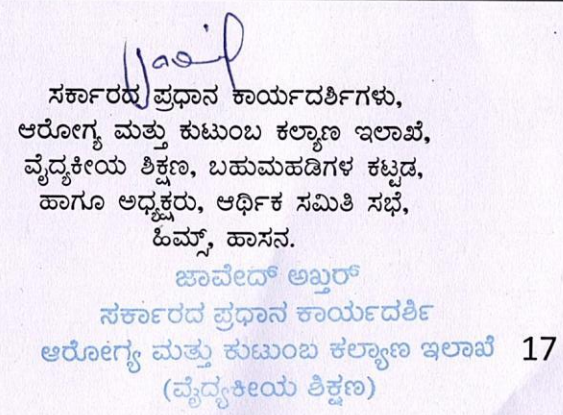 ಸರ್ಕಾರದ ಪ್ರಧಾನ ಕಾರ್ಯದರ್ಶಿಗಳು,
ಆರೋಗ್ಯ ಮತ್ತು ಕುಟುಂಬ ಕಲ್ಯಾಣ ಇಲಾಖೆ,
ವೈದ್ಯಕೀಯ ಶಿಕ್ಷಣ, ಬಹುಮಹಡಿಗಳ ಕಟ್ಟಡ,
ಹಾಗೂ ಅಧ್ಯಕ್ಷರು, ಆರ್ಥಿಕ ಸಮಿತಿ ಸಭೆ,
ಹಿಮ್ಸ್, ಹಾಸನ.
ಜಾವೇದ್ ಅಖ್ತರ್
ಸರ್ಕಾರದ ಪ್ರಧಾನ ಕಾರ್ಯದರ್ಶಿ
ಆರೋಗ್ಯ ಮತ್ತು ಕುಟುಂಬ ಕಲ್ಯಾಣ ಇಲಾಖೆ 17
(ವೈದ್ಯಕೀಯ ಶಿಕ್ಷಣ)